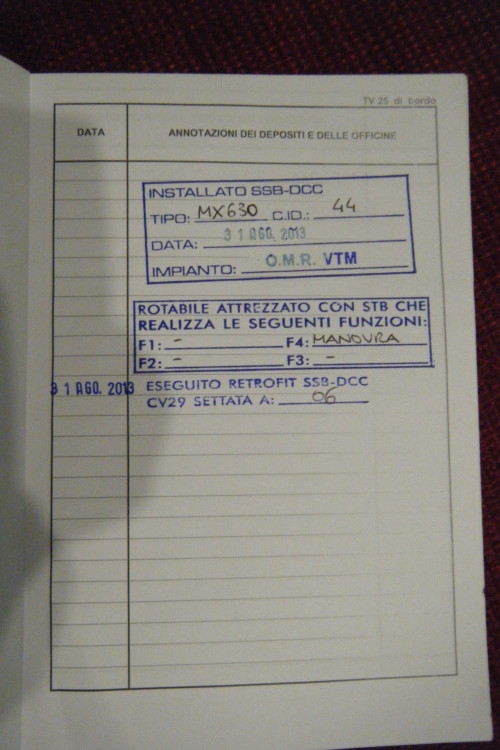 TV 25 di bordo
DATA ANNOTAZIONI DEI DEPOSITI E DELLE OFFICINE
INSTALLATO SSB-DCC
TIPO: MX630 C.ID.: 44
DATA: 31 AGO. 2013
IMPIANTO: O.M.R. VTM
ROTABILE ATTREZZATO CON STB CHE
REALIZZA LE SEGUENTI FUNZIONI:
F1: - F4: MANOVRA
F2: - F3: -
31 AGO. 2013 ESEGUITO RETROFIT SSB-DCC
CV29 SETTATA A: 06